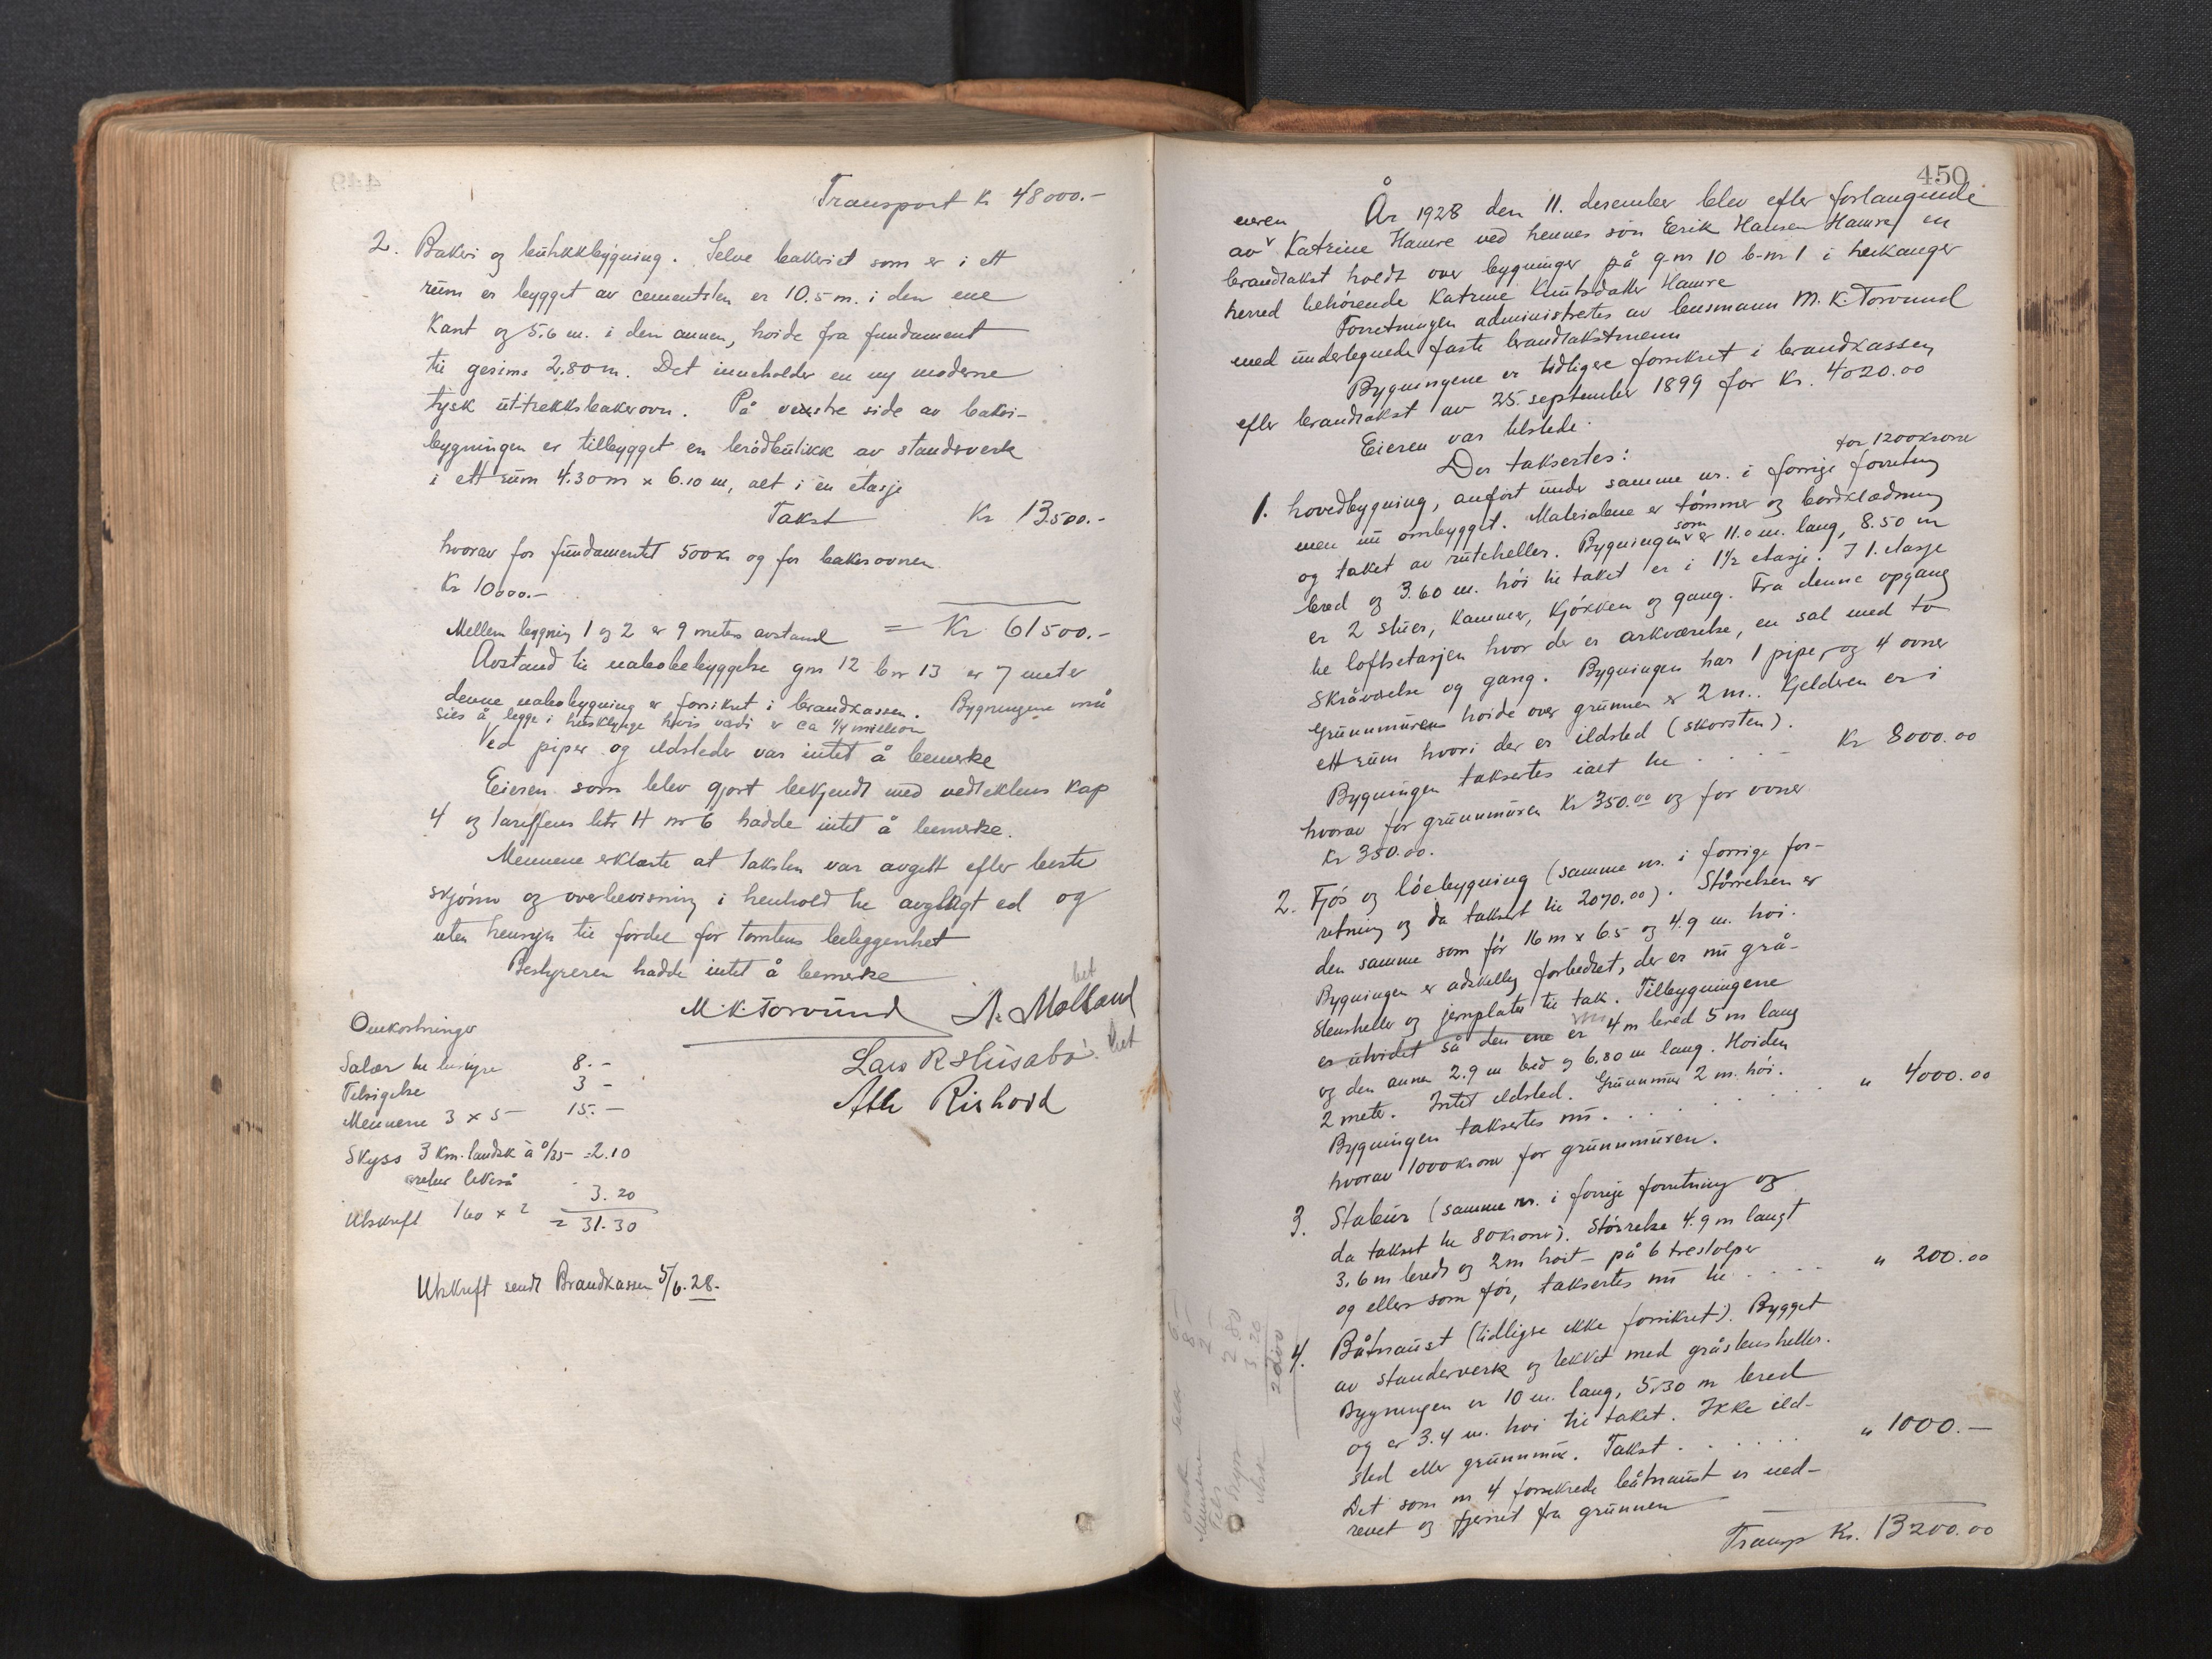 Transport Kr 48000.-
2. Bakeri og butikkbygning. Selve bakeriet som er i ett
rum er bygget av cementsten er 10.5 m. i den ene
kant og 5.6 m. i den annen, høide fra fundament
til gesims 2.80 m. Det inneholder en ny moderne
tysk uttrekksbakerovn. På venstre side av bakeri-
bygningen er tilbygget en brødbutikk av standsverk
i ett rum 4.30 m x 6.10 m, alt i en etasje
Takst Kr 13500.-
hvorav for fundamentet 500 kr og for bakerovnen
Kr 10000.-
Mellem bygning 1 og 2 er 9 meters avstand = Kr 61500.-
Avstand til nabobebyggelse gnr 12 bnr 13 er 7 meter
denne nabobygning er forsikret i brandkassen. Bygningene må
sies å legge i husklynge hvis verdi er ca 1/4 million
Ved piper og ildsteder var intet å bemerke
Eieren som blev gjort bekjendt med vedtektens kap
4 og tariffens litr H nr 6 hadde intet å bemerke.
Mennene erklærte at taksten var avgitt efter beste
skjønn og overbevisning i henhold til avglagt ed og
uten hensyn til fordel for tomtens beleggenhet
Bestyreren hadde intet å bemerke
M. K. Torvund A. Molland
Lars R Husabø.
Atle Rishovd
Omkostninger
Salær til bestyre 8.-
Tilsigelse 3 -
Mennene 3 x 5- 15.-
Skyss 3 km. landsk à 0/35- 2.10
retur
Utskrift 160 x 2 3.20
= 31.30
Utskrift sendt Brandkassen 5/6.28.
450
År 1928 den 11. desember blev efter forlangende
eieren
av Katrine Hamre ved hennes søn Eerik Hansen Hamre en
brandtakst holdt over bygninger på g-nr 10 b-nr 1 i Leikanger
herred behørende Katrine Knutsdatter Hamre
Forretningen administrertes av lensmann M. K. Torvund
med underlegnede faste brandtakstmenn
Bygningene er tidligere forsikret i brandkassen
efter brandtakst av 25. september 1899 for Kr. 4020.00
Eieren var tilstede.
Der taksertes:
for 1200 kroner
1. Hovedbygning, anført under samme nr. i forrige forretning
men nu ombygget. Materialene er tømmer og bordklædning
og taket av ruteheller. Bygningen som er 11.0 m. lang, 8.50 m
bred og 3.60 m. høi til taket er i 1 1/2 etasje. I 1. etasje
er 2 stuer, kammer, kjøkken og gang. Fra denne opgang
til loftsetasjen hvor der er arkværelse, en sal med to
skråværelse og gang. Bygningen har 1 pipe, og 4 ovner
Grunnmurens høide over grunnen er 2 m.. Kjelderen er i
ett rum hvori der er ildsted (skorsten).
Bygningen taksertes ialt til . . - Kr 8000.00
hvorav for grunnmuren Kr 350.00 og for ovner
Kr 350.00.
2. Fjøs og løebygning (samme nr. i forrige for-
retning og da taksert til 2070.00). Størrelsen er
den samme som før 16 m x 6.5 og 4.9 m. høi.
Bygningen er adskillig forbedret, der er nu grå-
stensheller og jernplater til tak. Tilbygningene
er utvidet så den ene er 4 m bred 5 m lang
og den annen 2.9 m bred og 6.80 m lang. Høiden
2 meter. Intet ildsted. Grunnmur 2 m. høi.
Bygningen taksertes nu . . . . . . " 4000.00
hvorav 1000 kroner for grunnmuren.
3. Stabur (samme nr. i forrige forretning og
da takset til 80 kroner). Størrelse 4.9 m langt
3.6 m bredt og 2 m høit - på 6 trestolper
og ellers som før, taksertes nu til . . . . " 200.00
4. Båtnaust (tidligere ikke forsikret). Bygget
av standerverk og tekket med gråstensheller.
Bygningen er 10 m. lang, 5.30 m bred
og er 3.4 m. høi til taket. Ikke ild-
sted eller grunnmur. Takst . . . . . . " 1000.-
Det som nr 4 forsikrede båtnaust er ned-
revet og fjernet fra grunnen
Transp Kr. 13200.00